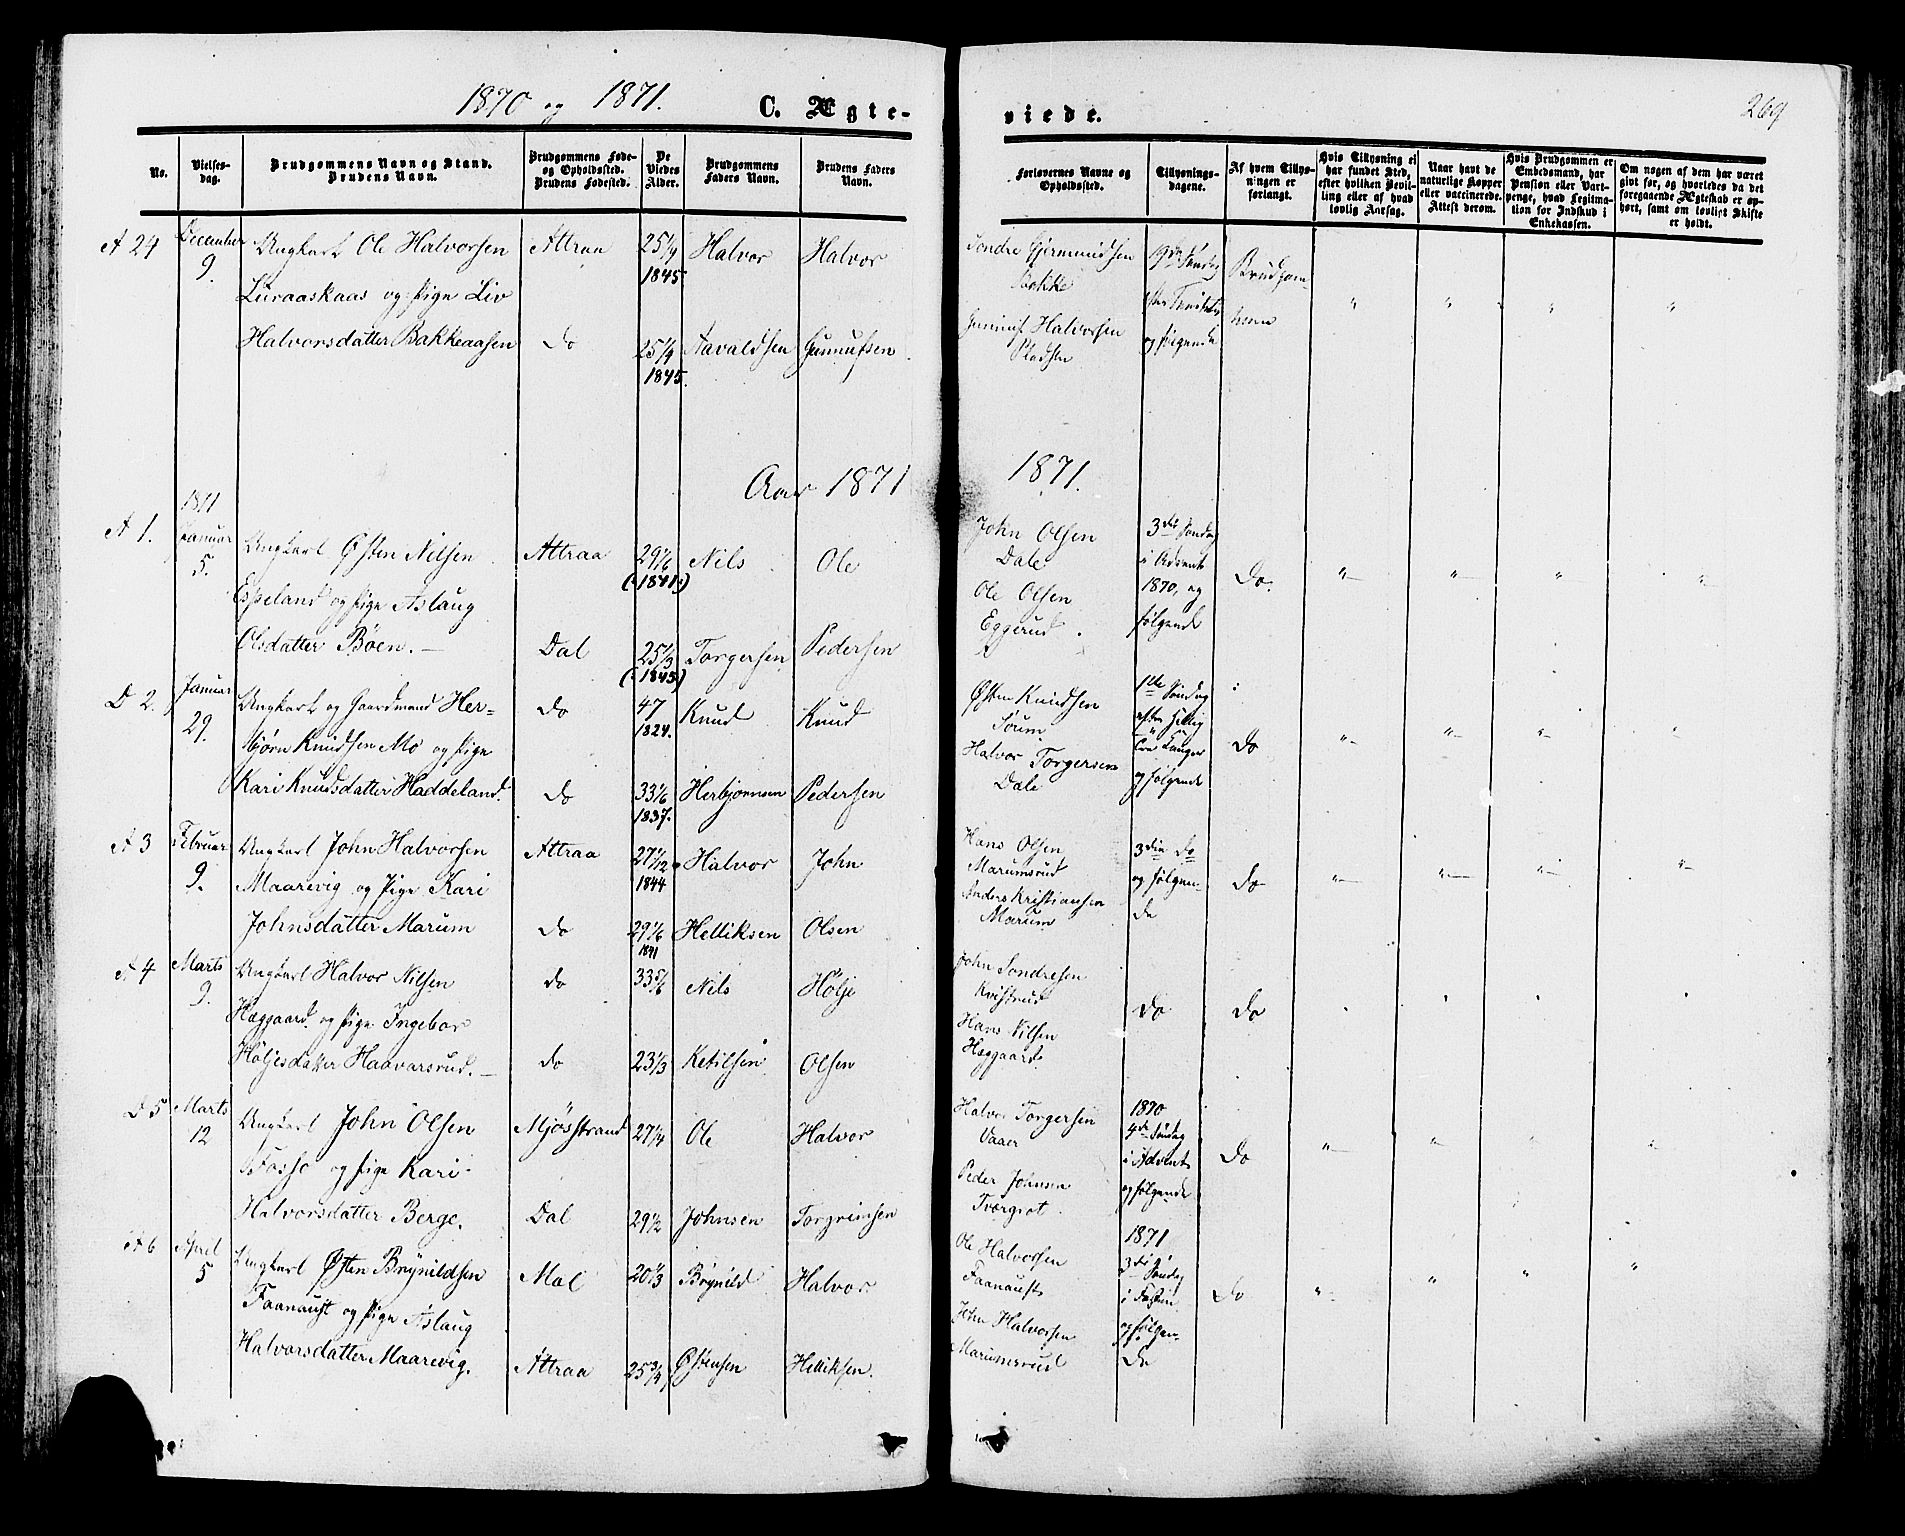 1870 og 1871.
C. Ægte-
viede.
269
No.
Vielses-
dag.
Brudgommens Navn og Stand.
Brudens Navn.
Brudgommens Føde-
og Opholdssted.
Brudens Fødested.
De
Viedes
Alder.
Brudgommens
Faders Navn.
Brudens Faders
Navn.
Forlovernes Navne og
Opholdssted.
Tillysnings-
dagene.
Af hvem Tillys-
ningen er
forlangt.
Hvis Tillysning ei
har fundet Sted,
efter hvilken Bevil-
ling eller af hvad
lovlig Aarsag.
Naar havt de
naturlige Kopper
eller vaccinerede.
Attest derom.
Hvis Brudgommen er
Embedsmand, har
Pension eller Vart-
penge, hvad Legitima-
tion for Indskud i
Enkekassen.
Om nogen af dem har været
givt før, og hvorledes da det
foregaaende Ægteskab er op-
hørt, samt om lovligt Skifte
er holdt.
A 24
December
9.
Ungkarl Ole Halvorsen
Luraaskaas og Pige Liv
Halvorsdatter Bakkeaasen
Attraa
do
25 1/9
1845
25 1/9
1845.
Halvor
Aavaldsen
Halvor
Gunnufsen
Sondre Gjermundsen
Bakke
Gunnuf Halvorsen
Pladsen
19de Søndag
efter Trinitatis
og følgende
Brudgom-
men
Aar 1871
1871.
A 1.
1871
Januar
5.
Ungkarl Østen Nilsen
Espeland og Pige Aslaug
Olsdatter Bøen.
Attraa
Dal
29 1/6
(:1841:)
25 1/3
(:1845)
Nils
Torgersen
Ole
Pedersen
John Olsen
Dale
Ole Olsen
Eggerud.
3die Søndag
i Advent
1870, og
følgende
Do.
D 2.
Januar
29.
Ungkarl og Gaardmand Her-
bjørn Knudsen Mo og Pige
Kari Knudsdatter Haddeland.
do
do
47
1824.
33 1/6
1837.
Knud
Herbjørnsen
Knud
Pedersen
Østen Knudsen
Soum
Halvor Torgersen
Dale
1ste Søndag
efter Hellig
tre Konger
og følgende
Do
A 3
Februar
9.
Ungkarl John Halvorsen
Maarevig og Pige Kari
Johnsdatter Marum
Attraa
do
27 1/12
1844
29 1/6
1841
Halvor
Helliksen
John
Olsen
Hans Olsen
Marumsrud
Anders Kristiansen
Marum
3die do
og følgen-
de
Do
A 4
Marts
9.
Ungkarl Halvor Nilsen
Hæggaard og Pige Ingebor
Høljesdatter Haavarsrud.
do
do
33 5/6
23 1/3
Nils
Ketilsen
Hølje
Olsen
John Sondresen
Kvistrud
Hans Nilsen
Hæggaard
Do
Do
D 5
Marts
12
Ungkarl John Olsen
Fosso og Pige Kari
Halvorsdatter Berge.
Mjøsstrand
Dal
27 1/4
29 1/2
Ole
Johnsen
Halvor
Torgrimsen
Halvor Torgersen
Vaaer
Peder Johnsen
Tvergrot
1870
4de Søndag
i Advent
og følgende
Do
A 6
April
5
Ungkarl Østen Brynildsen
Faanaust og Pige Aslaug
Halvorsdatter Maarevig.
Mæl
Attraa
20 1/3
25 3/4
Brynild
Østensen
Halvor
Helliksen.
Ole Halvorsen
Faanaust
John Halvorsen
Marumsrud
1871
3die Søndag
i Fasten
og følgen-
de
Do